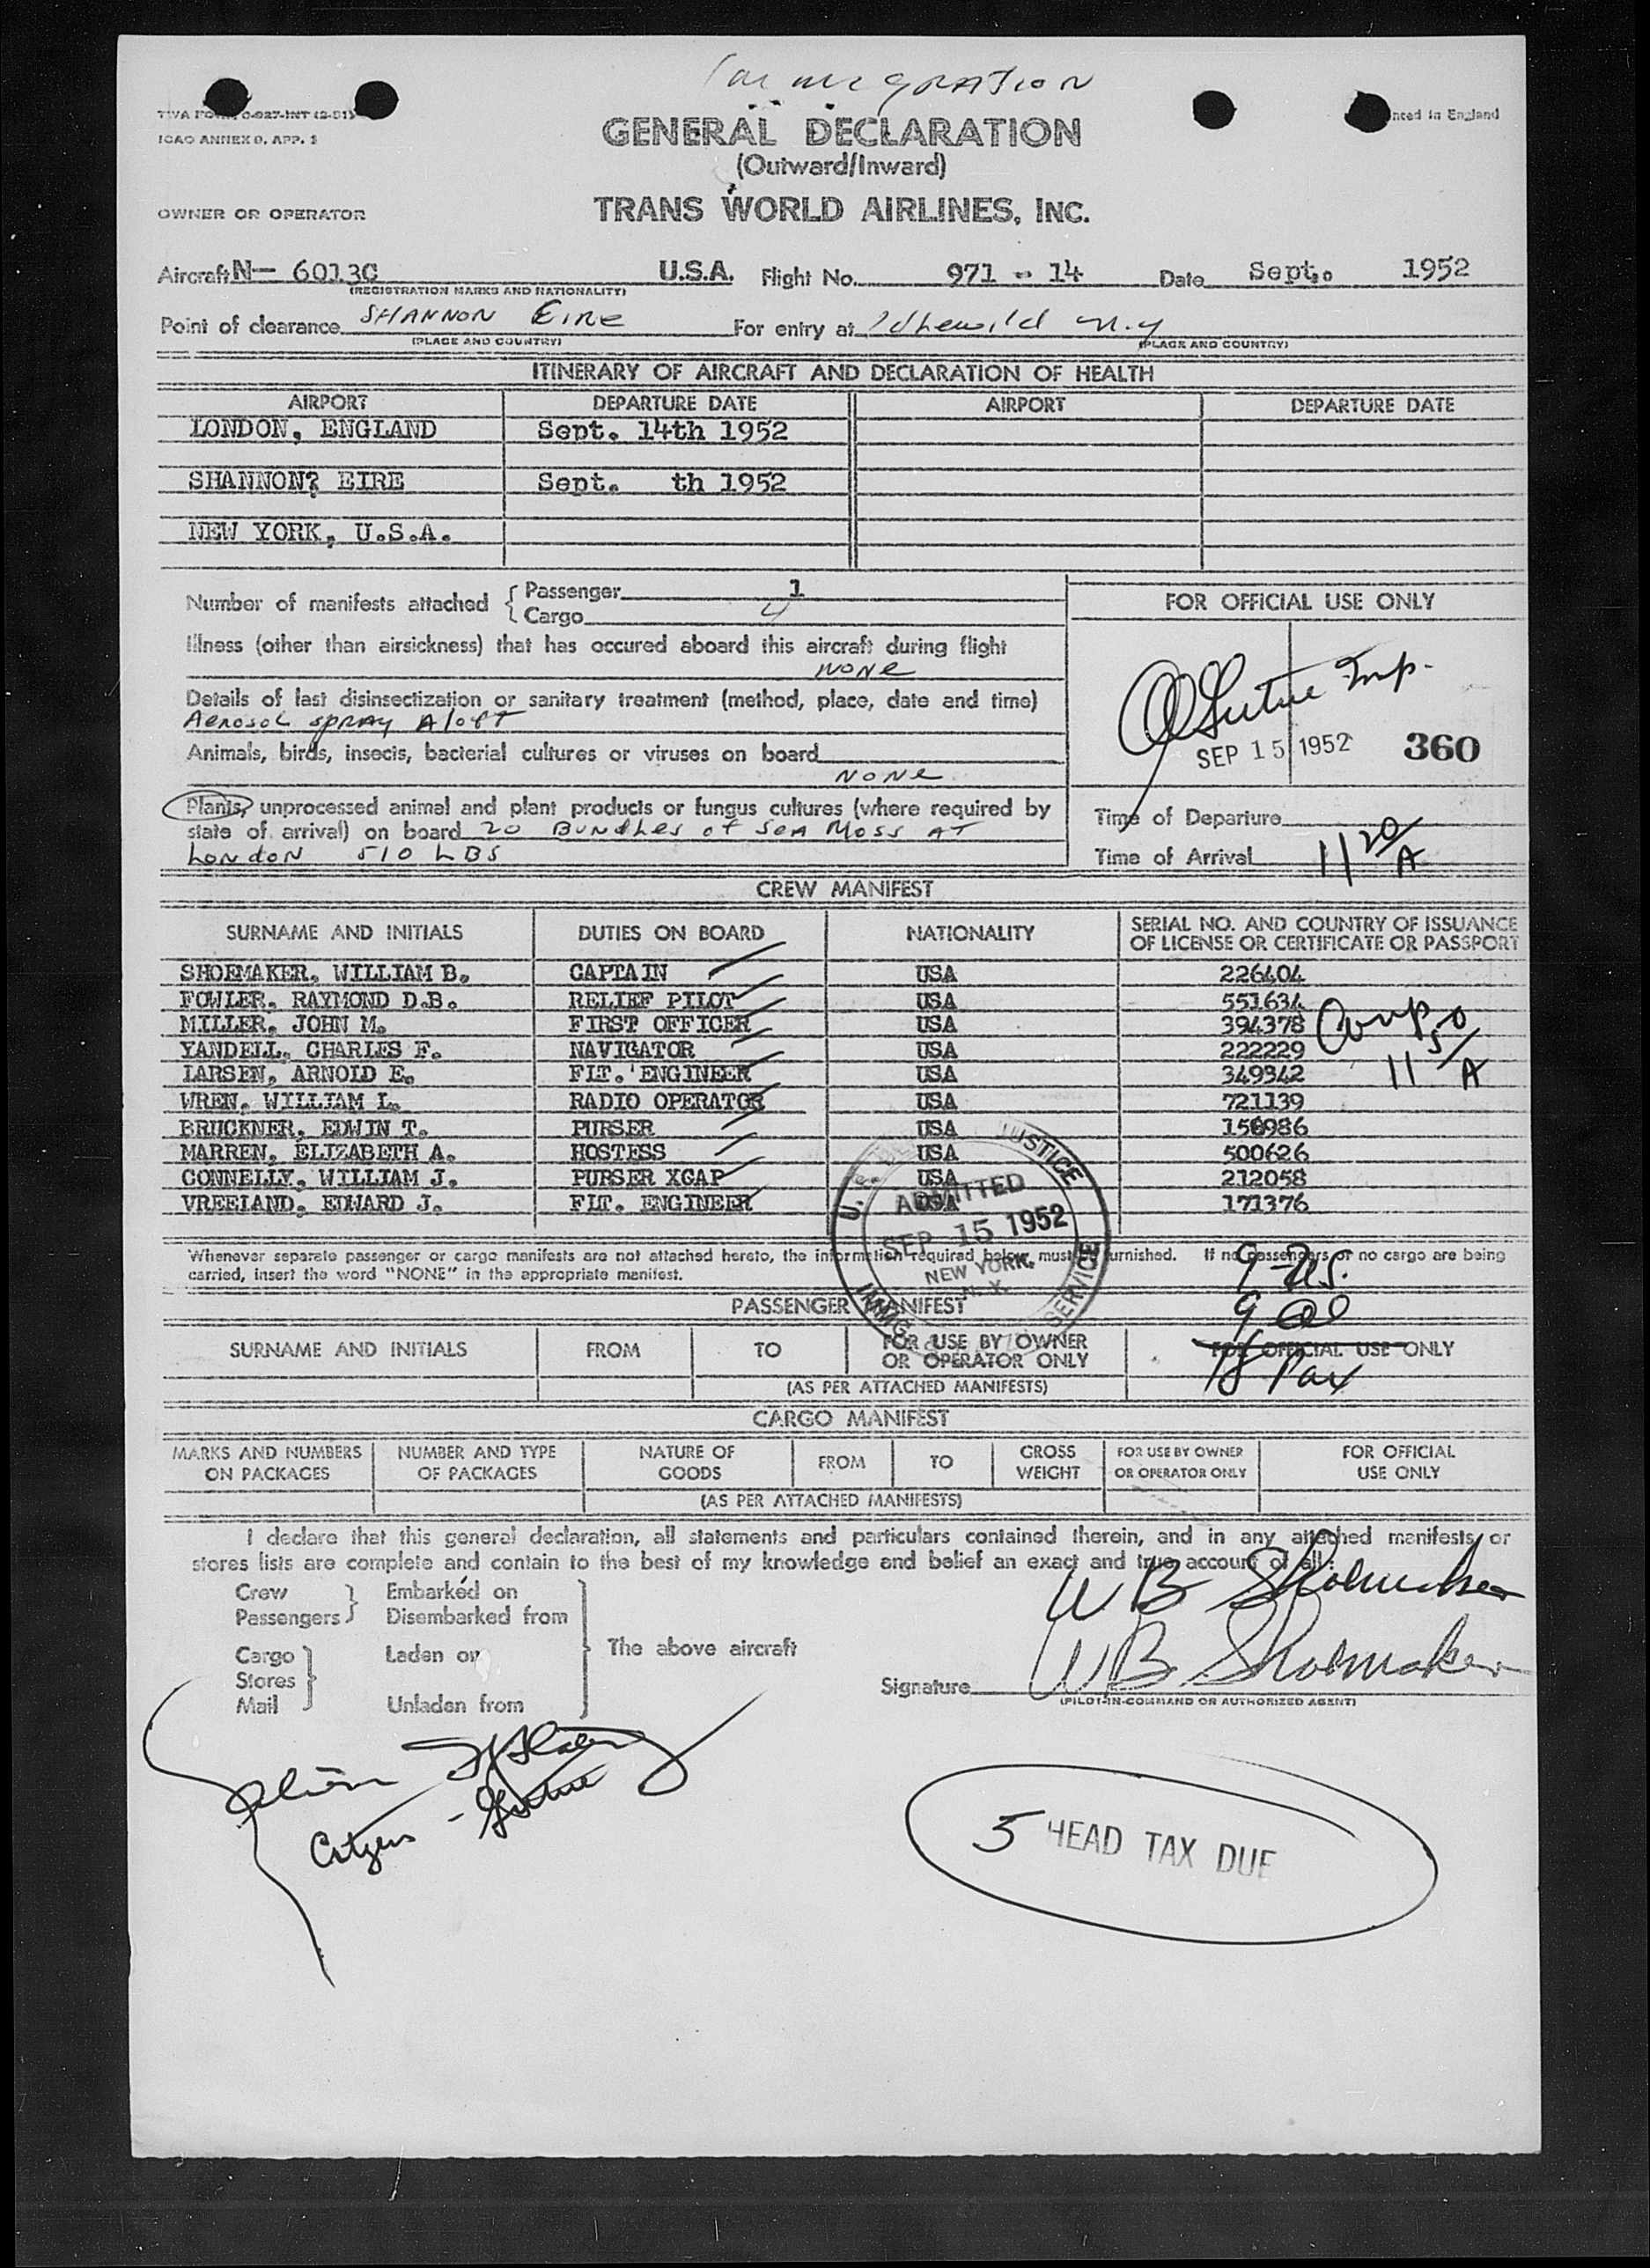 Immigration
TWA FORM 0-027-INT (2-51)
nted in England
ICAO ANNEX 9, APP. 1
GENERAL DECLARATION
(Outward/Inward)
OWNER OR OPERATOR
TRANS WORLD AIRLINES, INC.
Aircraft N— 6013C U.S.A. Flight No. 971 - 14 Date Sept. 1952
(REGISTRATION MARKS AND NATIONALITY)
Point of clearance SHANNON EIRE For entry at Idlewild N.Y
(PLACE AND COUNTRY) (PLACE AND COUNTRY)
ITINERARY OF AIRCRAFT AND DECLARATION OF HEALTH
AIRPORT DEPARTURE DATE AIRPORT DEPARTURE DATE
LONDON, ENGLAND Sept. 14th 1952
SHANNON? EIRE Sept. th 1952
NEW YORK, U.S.A.
Number of manifests attached { Passenger 1
Cargo 4
FOR OFFICIAL USE ONLY
Illness (other than airsickness) that has occured aboard this aircraft during flight
NONE
Details of last disinsectization or sanitary treatment (method, place, date and time)
Aerosol spray Aloft
Insp.
SEP 15 1952 360
Animals, birds, insects, bacterial cultures or viruses on board
NONE
Plants, unprocessed animal and plant products or fungus cultures (where required by
state of arrival) on board 20 Bundles of Sea Moss AT
London 510 LBS
Time of Departure
Time of Arrival 11 20/A
CREW MANIFEST
SURNAME AND INITIALS DUTIES ON BOARD NATIONALITY SERIAL NO. AND COUNTRY OF ISSUANCE
OF LICENSE OR CERTIFICATE OR PASSPORT
SHOEMAKER, WILLIAM B. CAPTAIN USA 226404
FOWLER, RAYMOND D.B. RELIEF PILOT USA 551634
MILLER, JOHN M. FIRST OFFICER USA 394378 Comp
YANDELL, CHARLES F. NAVIGATOR USA 222229
LARSEN, ARNOLD E. FLT. ENGINEER USA 349342 11 50/A
WREN, WILLIAM L. RADIO OPERATOR USA 721139
BRUCKNER, EDWIN T. PURSER USA 156986
MARREN, ELIZABETH A. HOSTESS USA 500626
CONNELLY, WILLIAM J. PURSER XCAP USA 212058
VREELAND, EDWARD J. FLT. ENGINEER USA 171376
U. S. JUSTICE
ADMITTED
SEP 15 1952
NEW YORK,
N. Y.
IMMIG SERVICE
Whenever separate passenger or cargo manifests are not attached hereto, the information required below must be furnished. If no passengers or no cargo are being
carried, insert the word "NONE" in the appropriate manifest.
PASSENGER MANIFEST
SURNAME AND INITIALS FROM TO FOR USE BY OWNER
OR OPERATOR ONLY
FOR OFFICIAL USE ONLY
18 Pax
(AS PER ATTACHED MANIFESTS)
CARGO MANIFEST
MARKS AND NUMBERS
ON PACKAGES NUMBER AND TYPE
OF PACKAGES NATURE OF
GOODS FROM TO GROSS
WEIGHT FOR USE BY OWNER
OR OPERATOR ONLY FOR OFFICIAL
USE ONLY
(AS PER ATTACHED MANIFESTS)
I declare that this general declaration, all statements and particulars contained therein, and in any attached manifests or
stores lists are complete and contain to the best of my knowledge and belief an exact and true account of all:
W B Shoemaker
Crew
Passengers } Embarked on
Disembarked from
Cargo
Stores
Mail } Laden on
Unladen from
The above aircraft
Signature W B Shoemaker
(PILOT-IN-COMMAND OR AUTHORIZED AGENT)
Citizens -
5 HEAD TAX DUE